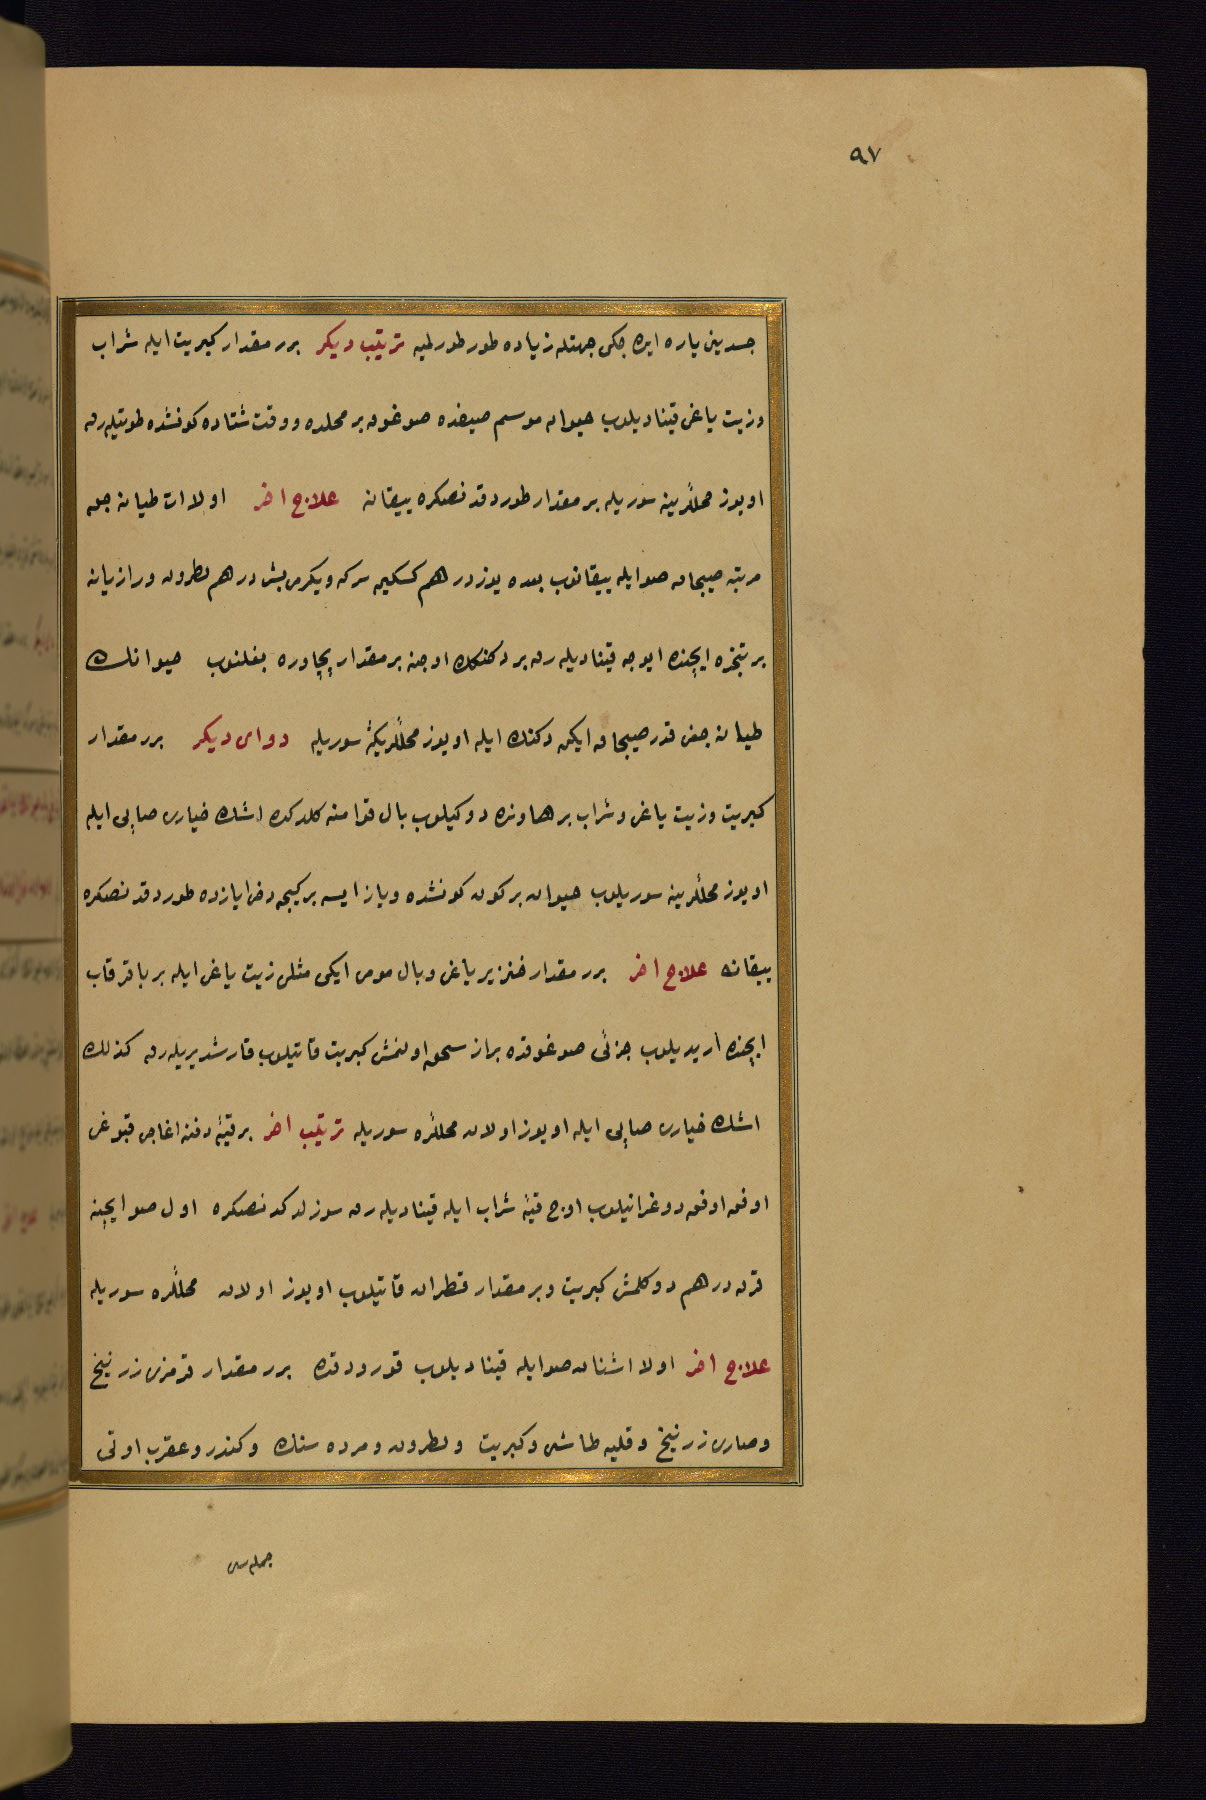 ٩٧
جسدین یاره ایده جکی جهتله زیاده طور طورلمیه ترتیب دیکر برر مقدار کبریت ایله شراب
وزیت یاغی قینادیلوب حیوان موسم صیفده صوغوق بر محلده ووقت شتاده کونشده طوتیله رق
اویوز محللرینه سوریله بر مقدار طوردقدنصکره ییقانه علاج اخر اولا ات طیانه جق
مرتبه صیجاق صو ایله ییقانوب بعده یوز درهم کسکین سرکه ویکرمی بش درهم نطرون ورازیانه
بر تنجره ایچنده ایوجه قینادیله رق بر دکنکك اوجنه بر مقدار پچاوره بغلنوب حیوانك
طیانه جغی قدر صیجاق ایکن دکنك ایله اویوز محللرینه سوریله دوای دیکر برر مقدار
کبریت وزیت یاغی وشراب بر هاونده دوکیلوب بال قوامنه کلدکده اشك خیاری صاپی ایله
اویوز محللرینه سوریلوب حیوان بر کون کونشده ویاز ایسه بر کیجه دخی ایازده طوردقدنصکره
ییقانه علاج اخر برر مقدار خنزیر یاغی وبال مومی ایکی مثلی زیت یاغی ایله بر باقر قاب
ایچنده اریدیلوب جزئی صوغوقده براز سحق اولنمش کبریت قاتیلوب قارشدیریله رق کذلك
اشك خیاری صاپی ایله اویوز اولان محللره سوریله ترتیب اخر بر قیه دفنه اغاجی قبوغی
اوفق اوفق دوغرانیلوب اوچ قیه شراب ایله قینادیله رق سوزلدکدنصکره اول صو ایچنه
قرق درهم دوکلمش کبریت وبر مقدار قطران قاتیلوب اویوز اولان محللره سوریله
علاج اخر اولا اشنان صو ایله قینادیلوب قورودقده برر مقدار قرمزی زرنیخ
وصاری زرنیخ وقلیه طاشی وکبریت ونطرون ومرده سنك وکندر وعقرب اوتی
جمله سی